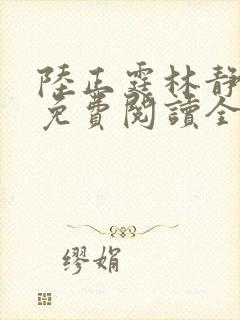 陸正霆林靜
免費閱讀全
繆娟